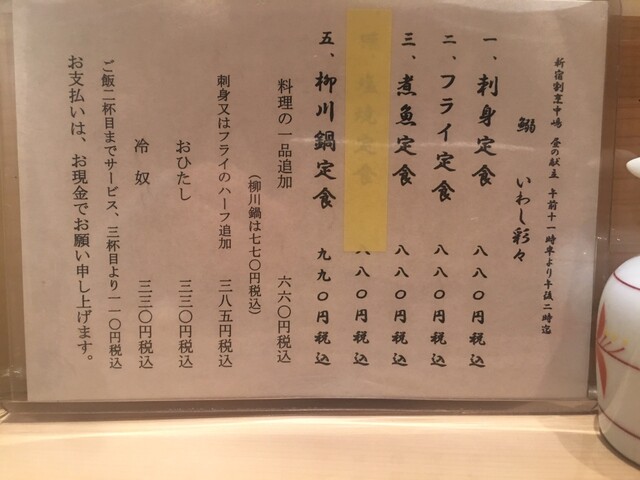 新宿割烹中嶋 昼の献立 午前十一時半より午後二時迄
鰯 いわし彩々
一、刺身定食 八八〇円税込
二、フライ定食 八八〇円税込
三、煮魚定食 八八〇円税込
塩焼定食 八八〇円税込
五、柳川鍋定食 九九〇円税込
料理の一品追加 六六〇円税込
(柳川鍋は七七〇円税込)
刺身又はフライのハーフ追加 三八五円税込
おひたし 三三〇円税込
冷奴 三三〇円税込
ご飯二杯目までサービス、三杯目より一一〇円税込
お支払いは、お現金でお願い申し上げます。